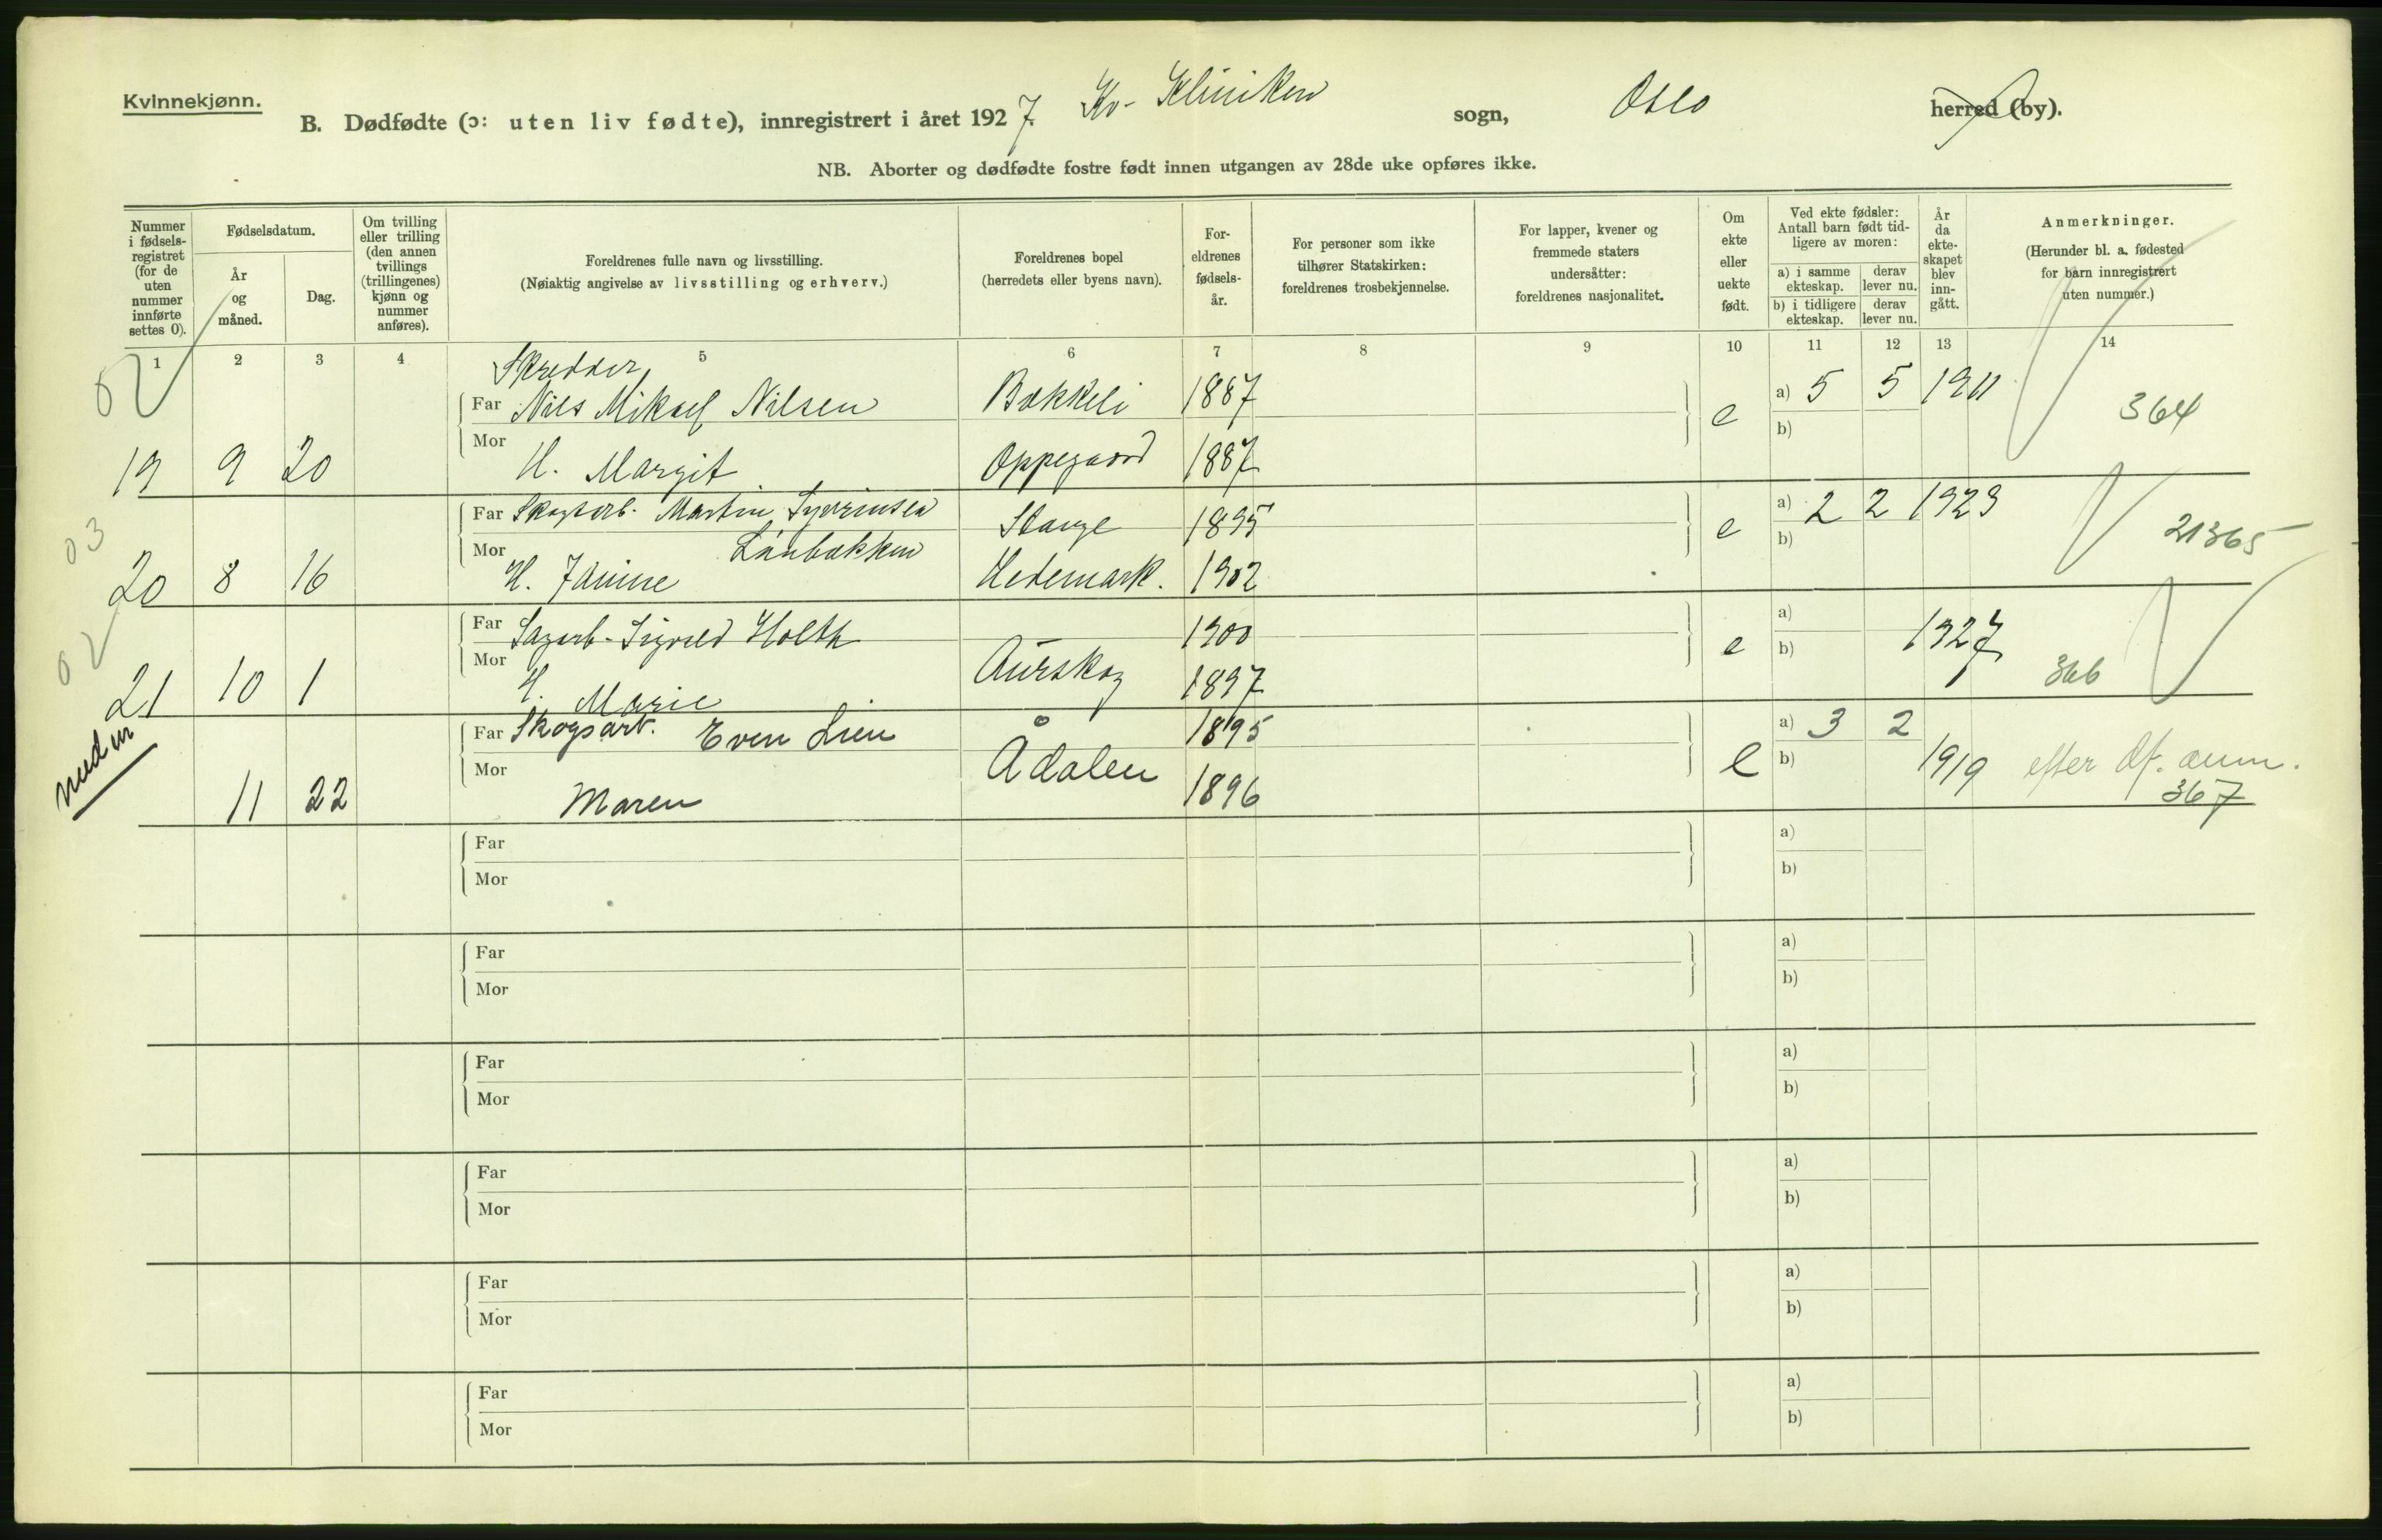 Kvinnekjønn.
B. Dødfødte (ɔ: uten liv fødte), innregistrert i året 1927. Kv-Kliniken sogn, Oslo herred (by).
NB. Aborter og dødfødte fostre født innen utgangen av 28de uke opføres ikke.
Nummer i fødsels-registret (for de uten nummer innførte settes 0).
Fødselsdatum.
År og måned.
Dag.
Om tvilling eller trilling (den annen tvillings (trillingenes) kjønn og nummer anføres).
Foreldrenes fulle navn og livsstilling.
(Nøiaktig angivelse av livsstilling og erhverv.)
Foreldrenes bopel
(herredets eller byens navn).
For-eldrenes fødsels-år.
For personer som ikke tilhører Statskirken: foreldrenes trosbekjennelse.
For lapper, kvener og fremmede staters undersåtter: foreldrenes nasjonalitet.
Om ekte eller uekte født.
Ved ekte fødsler: Antall barn født tid-ligere av moren:
a) i samme ekteskap.
derav lever nu.
b) i tidligere ekteskap.
derav lever nu.
År da ekte-skapet blev inn-gått.
Anmerkninger.
(Herunder bl. a. fødested for barn innregistrert uten nummer.)
1 2 3 4 5 6 7 8 9 10 11 12 13 14
Skredder
Far Nils Mikael Nilsen Bækkeli 1887 e a) 5 5 1911 364
19 9 20 Mor H. Margit Oppegaard 1887 b)
03
Far Skogsarb. Martin Syverinsen Stange 1895 e a) 2 2 1923 21365
Linbækken
20 8 16 Mor H. Janine Hedemark. 1902 b)
02
Far Sagarb- Sigvald Holth Aurskog 1900 e a) 1927
21 10 1 Mor H. Marie 1897 b) 366
Far Skogsarb. Even Lien Ådalen 1895 e a) 3 2 1919 efter
11 22 Mor Maren 1896 b) 367
Far a)
Mor b)
Far a)
Mor b)
Far a)
Mor b)
Far a)
Mor b)
Far a)
Mor b)
Far a)
Mor b)